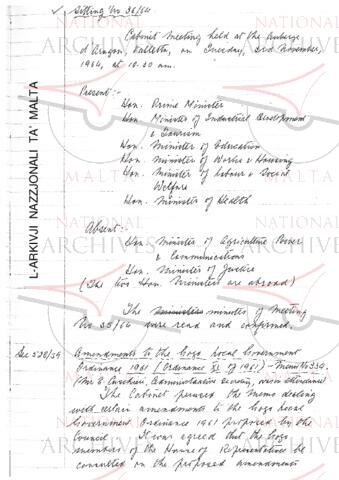 ✓ Sitting No 36/64
Cabinet Meeting held at the Auberge
d'Aragon, Valletta, on Tuesday, 3rd November,
1964, at 10.30 a.m.
Present:-
Hon. Prime Minister
Hon. Minister of Industrial Development
& Tourism
Hon. Minister of Education
Hon. Minister of Works & Housing
Hon. Minister of Labour & Social
Welfare
Hon. Minister of Health
Absent:-
Hon Minister of Agriculture Power
& Communications
Hon. Minister of Justice
(The two Hon. Ministers are abroad)
The minutes of Meeting
No 35/64 were read and confirmed.
Amendments to the Gozo Local Government
Ordinance 1961 (Ordinance of 1961) - Memo No 339.
(Mr E. Administrative Secretary, was in attendance)
The Cabinet perused the memo dealing
with certain amendments to the Gozo Local
Government Ordinance 1961 proposed by the
Council. It was agreed that the Gozo
members of the House of Representatives be
consulted on the proposed amendments
L-ARKIVJI NAZZJONALI TA' MALTA
NATIONAL
ARCHIVES